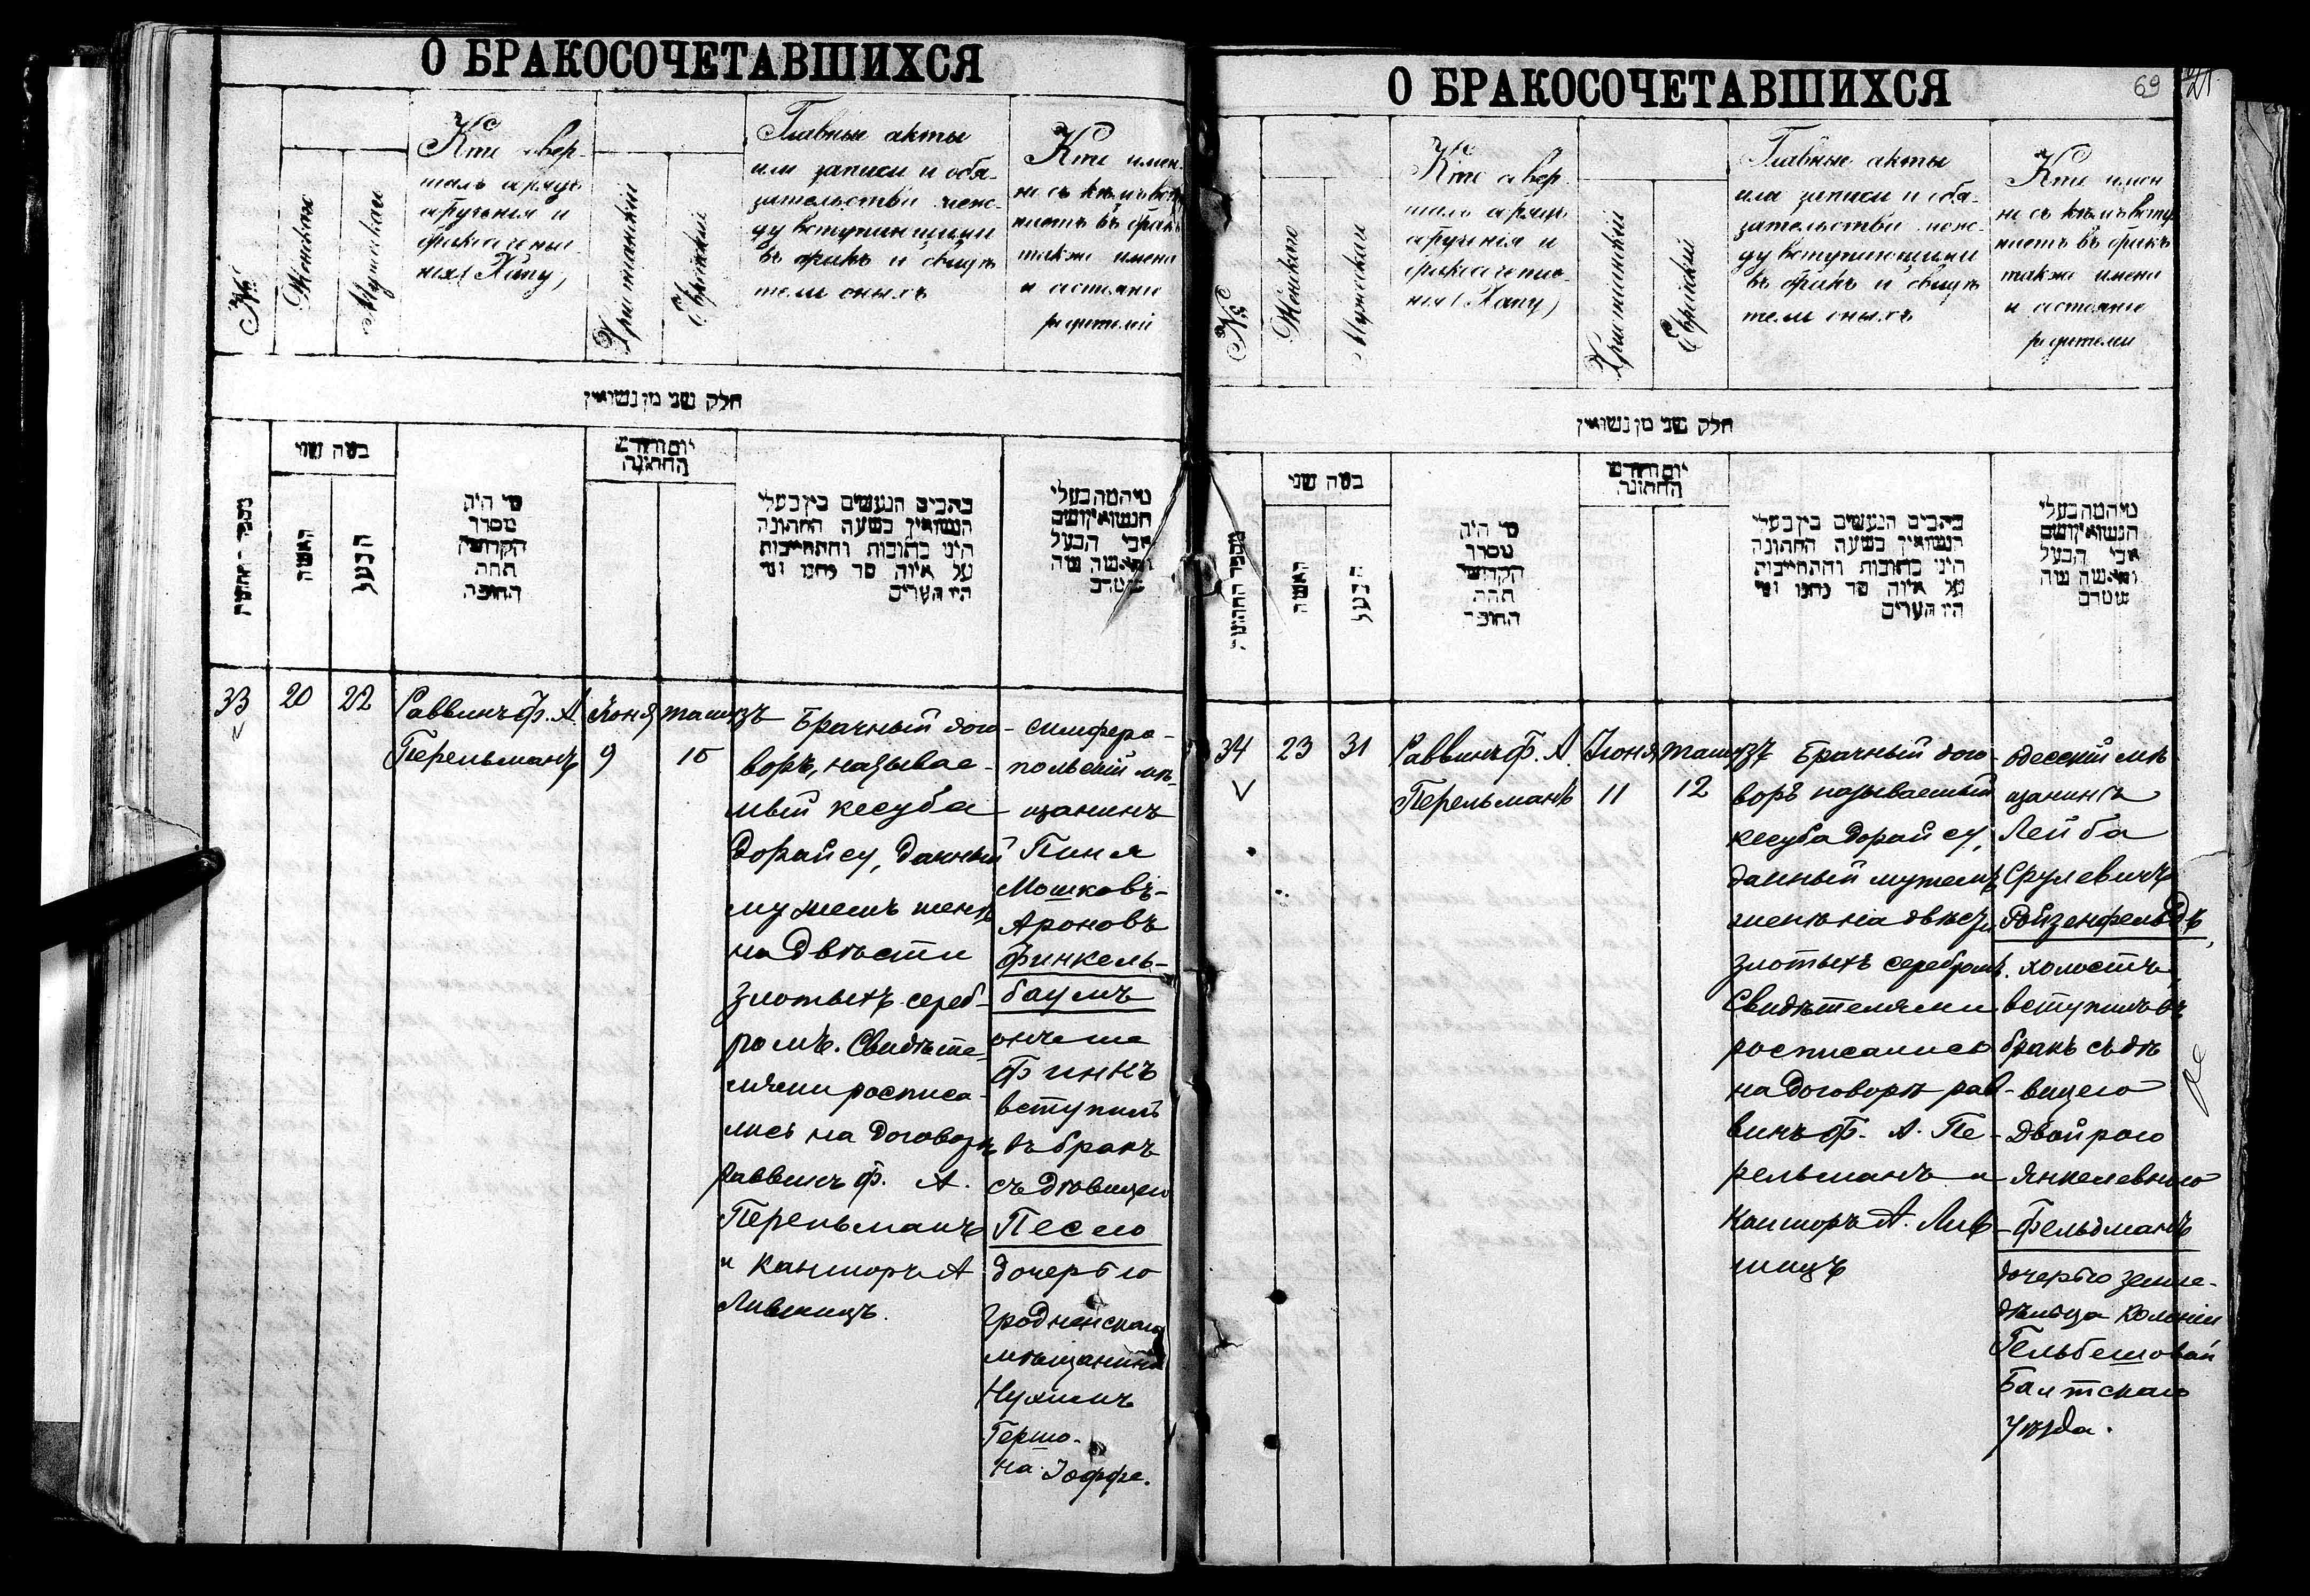 О БРАКОСОЧЕТАВШИХСЯ
№
Женскаго
Мужескаго
Кто совер-
шалъ обрядъ
обрученія и
бракосочета-
нія (Хапу)
Христіанскій
Еврейскій
Главные акты
или записи и обя-
зательства меж-
ду вступающими
въ бракъ и свидѣ
тели оныхъ
Кто имен-
но съ кѣмъ всту
паетъ въ бракъ
также имена
и состояніе
родителей
חלק שני מן נשואין
כמה שני
האשה
הבעל
מי היה
מסדר
הקדושין
תחת
החופה
יום וחודש
החתונה
כתבים הנעשים בין בעלי
הנשואין בשעה החתונה
היינו כתובות והתחייבות
על איזה סך נתנו ומי
היו העדים
אבי הבעל
33
20
22
Раввинъ Ф. А.
Перельманъ
Іюня
9
тамузъ
10
Брачный дого-
воръ, называе-
мый кесуба
дорайсу, данный
мужемъ женѣ
на двѣсти
злотыхъ сереб-
ромъ. Свидѣте-
лями росписа-
лись на договорѣ
раввинъ Ф. А.
Перельманъ
и канторъ А
Лившицъ.
симферо-
польскій мѣ-
щанинъ
Пиня
Мошковъ-
Ароновъ
Финкель-
баумъ
онъ же
Финкъ
вступилъ
въ бракъ
съ дѣвицею
Песею
дочерью
гродненскаго
мѣщанина
Нухима
Гершо-
на Іоффе.
О БРАКОСОЧЕТАВШИХСЯ
69
№
Женскаго
Мужескаго
Кто совер-
шалъ обрядъ
обрученія и
бракосочета-
нія (Хапу)
Христіанскій
Еврейскій
Главные акты
или записи и обя-
зательства меж-
ду вступающими
въ бракъ и свидѣ
тели оныхъ
Кто имен
но съ кѣмъ всту
паетъ въ бракъ
также имена
и состояніе
родителей
חלק שני מן נשואין
כמה שני
מספר החתונה
האשה
הבעל
מי היה
מסדר
הקדושין
תחת
החופה
יום וחודש
החתונה
כתבים הנעשים בין בעלי
הנשואין בשעה החתונה
היינו כתובות והתחייבות
על איזה סך נתנו ומי
היו העדים
אבי הבעל
34
23
31
Раввинъ Ф. А.
Перельманъ
Іюня
11
тамузъ
12
Брачный дого-
воръ называемый
кесуба дорайсу,
данный мужемъ
женѣ на двѣсти
злотыхъ серебромъ.
Свидѣтелями
росписались
на договорѣ рав-
винъ Ф. А. Пе-
рельманъ и
Канторъ А. Лив-
шицъ
Одесскій мѣ
щанинъ
Лейба
Срулевичъ
Ройзенфельдъ,
холостъ,
вступилъ въ
бракъ съ дѣ
вицею
Двойрою
Янкелевною
Фельдманъ
дочерью земле-
дѣльца колоніи
Гельбешовой
Балтскаго
Уѣзда.